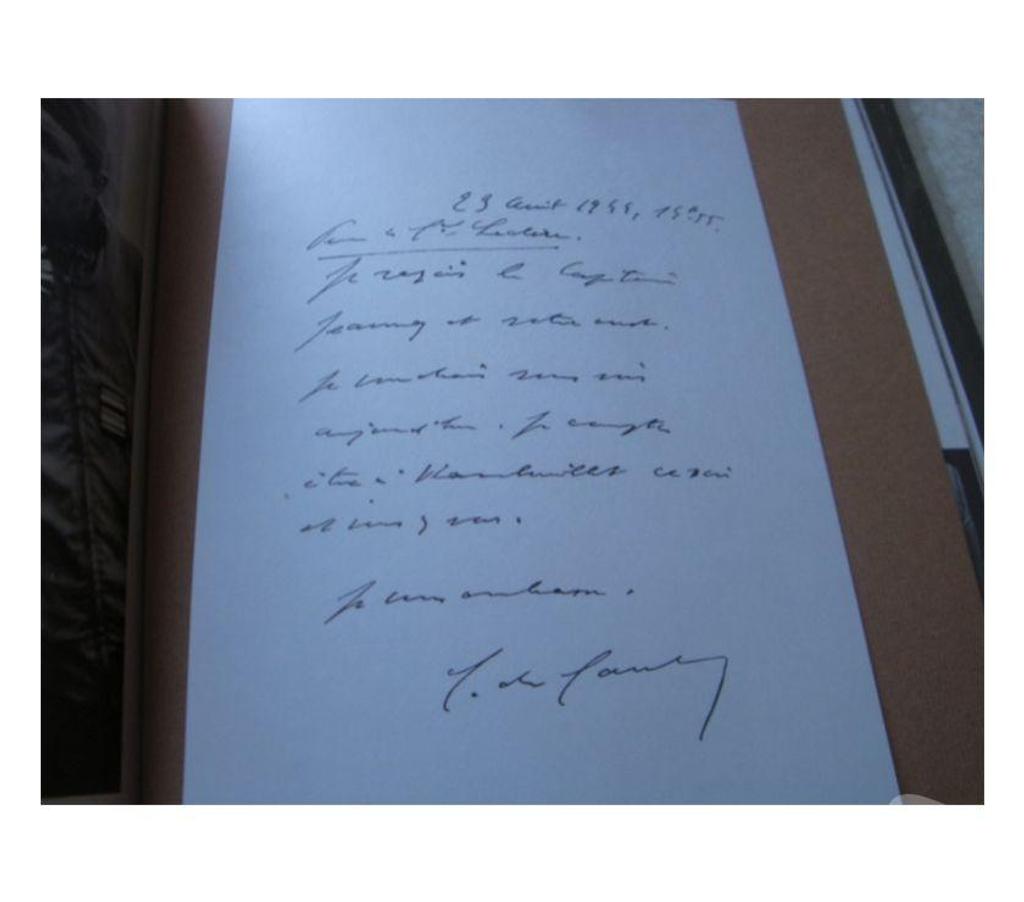 23 Août 1944, 13h55.
Pour le Gal Leclerc.
Je reçois le Capitaine
Janney et votre mot.
Je voudrais vous voir
aujourd'hui. Je compte
être à Rambouillet ce soir
et vous y voir.
Je vous embrasse.
C. de Gaulle